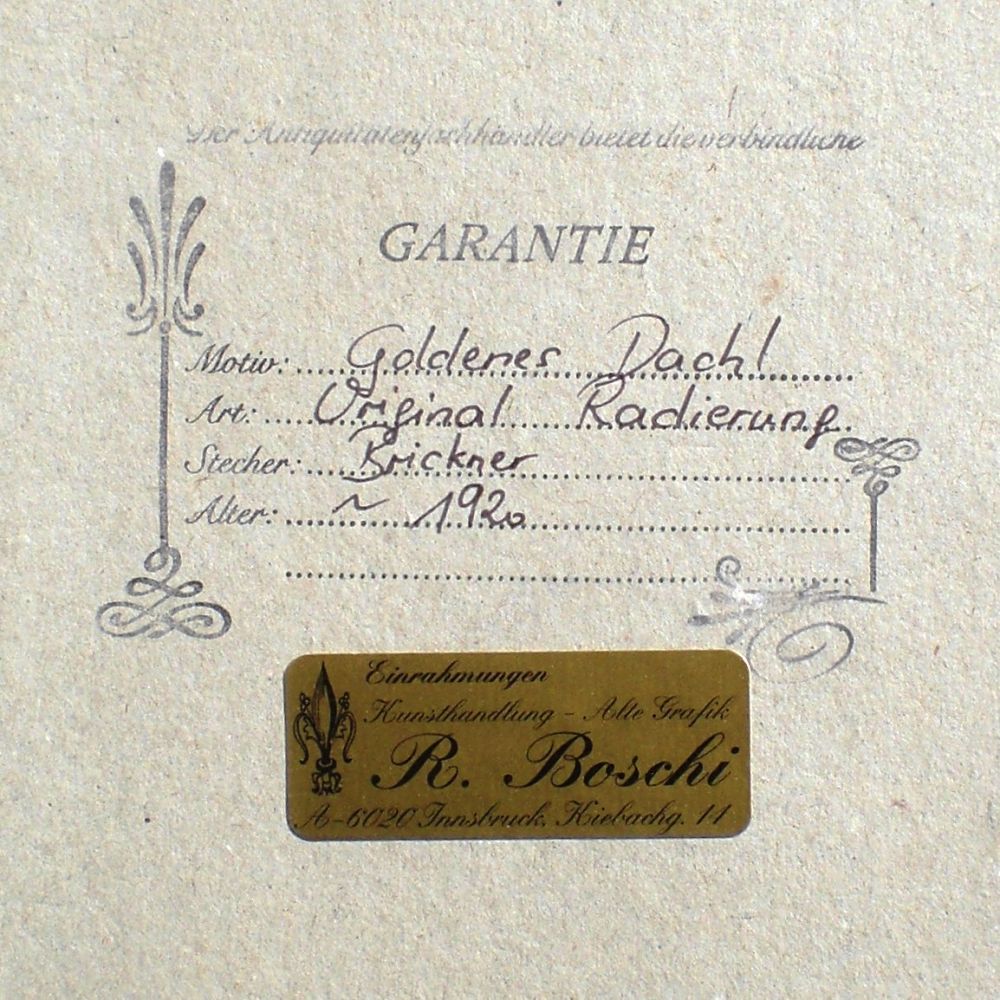 Der Antiquitätenfachhändler bietet die verbindliche
GARANTIE
Motiv: Goldenes Dachl
Art: Original Radierung
Stecher: Brickner
Alter: ~ 1920
Einrahmungen
Kunsthandlung - Alte Grafik
R. Boschi
A-6020 Innsbruck, Kiebachg. 11